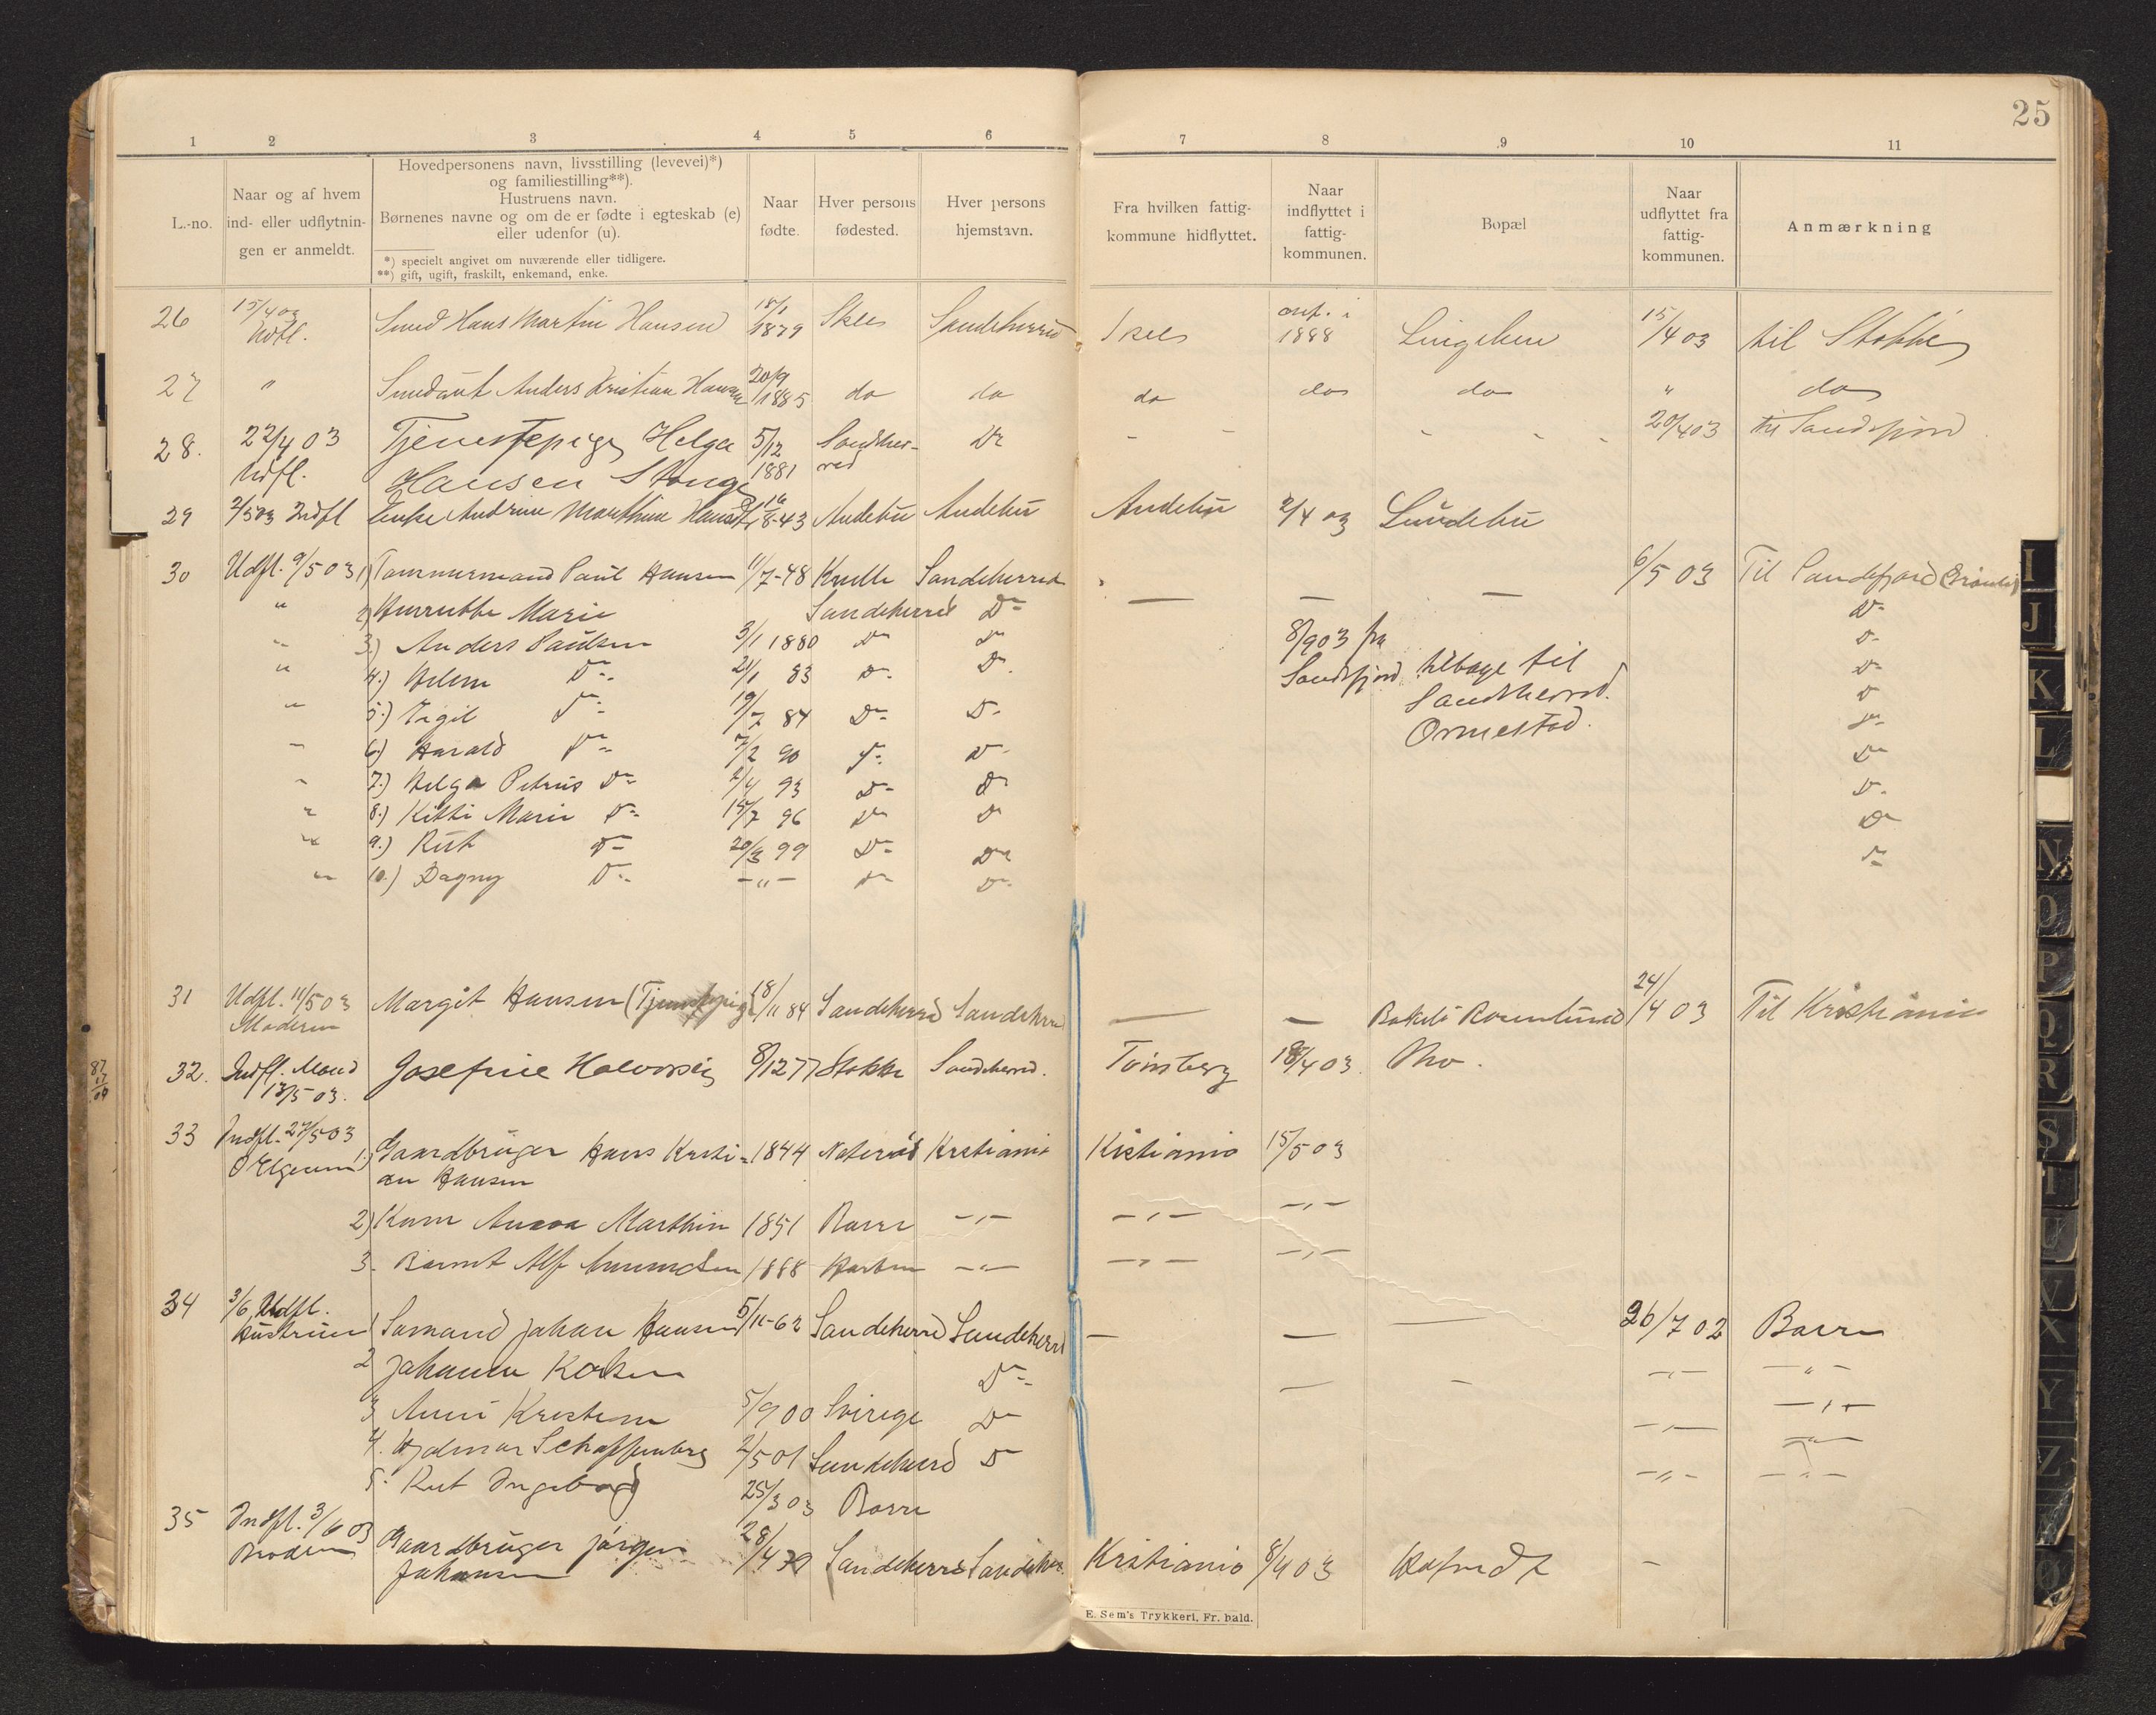 25
1 2 3 4 5 6 7 8 9 10 11
L.-no.
Naar og af hvem
ind- eller udflytnin-
gen er anmeldt.
Hovedpersonens navn, livsstilling (levevei)*)
og familiestilling**).
Hustruens navn.
Børnenes navne og om de er fødte i egteskab (e)
eller udenfor (u).
*) specielt angivet om nuværende eller tidligere.
**) gift, ugift, fraskilt, enkemand, enke.
Naar
fødte.
Hver persons
fødested.
Hver persons
hjemstavn.
Fra hvilken fattig-
kommune hidflyttet.
Naar
indflyttet i
fattig-
kommunen.
Bopæl
Naar
udflyttet fra
fattig-
kommunen.
Anmærkning
26 15/4 03 Smed Hans Martin Hansen 18/1 Skee Sandeherred Skee i 15/4 03 til Stokke
Udfl. 1879 1888
27 " Anders Kristian Hansen 20/9 1885 do do do do do " do
28. 22/4 03 Tjenestepige Helga 5/12 Sandeher- Do - - - - - 20/4 03 til Sandefjord
Udfl. Hansen 1881 red
29 2/5 03 Indfl Enke Andrine Marthine 8-43 Andebu Andebu Andebu 2/4 03
30 Udfl. 9/5 03 1) Tømmermand Paul Hansen 11/7-48 Sandeherred — — — 6/5 03 Til Sandefjord
" 2) Hustru Marie Sandeherred Do Do
" 3.) Anders Paulsen 3/1 1880 Do Do 8/9 03 fra Do
" 4.) Do 21/1 83 Do Do Sandefjord tilbage til Do
" 5.) Do 19/7 84 Do Do Sandeherred. Do
" 6.) Harald Do 7/2 90 Do Do Ormestad. Do
" 7.) Helga Petrus Do 2/4 93 Do Do Do
" 8.) Kitti Marie Do 15/7 96 Do Do Do
" 9.) Rut Do 20/3 99 Do Do Do
" 10.) Dagny Do —"— Do Do Do
31 Udfl. 11/5 03 Margit Hansen (Tjenestepige 18/11 84 Sandeherred Sandeherred — — 24/4 03 Til Kristiania
Moderen
32. Indfl. Mand Josefine Halvorsen 8/12 77 Stokke Sandeherred. Tønsberg 18/4 03. Mo.
13/5 03.
33 Indfl. 27/5 03 1.) Gaardbruger Hans Kristi- 1844 Nøterø Kristiania Kristiania 15/5 03
an Hansen
2) Kone Anna Marthin 1851 Borre —"— —"— —"—
3. Barnet Alf Amundsen 1888 Horten —"— —"— —"—
34 3/6 Udfl. 1 Sømand Johan Hansen 5/11-62 Sandeherred Sandeherred — — — 26/7 02 Borre
Hustruen
2 Johanne Do — — —"— —"—
3 Kristine 5/9 00 Sverige Do —"— —"—
4. Hjalmar 2/5 01 Sandeherred Do
5. Rut Ingeborg 25/3 03 Borre —"— —"—
35 Indfl. 3/6 03 Gaardbruger Jørgen 28/4 79 Sandeherred Sandeher. Kristiania 8/4 03 —
Broderen Johansen
E. Sem's Trykkeri, Fr. hald.
I
J
K
L
N
O
P
Q
R
S
T
U
V
X
Y
Z
Æ
Ø